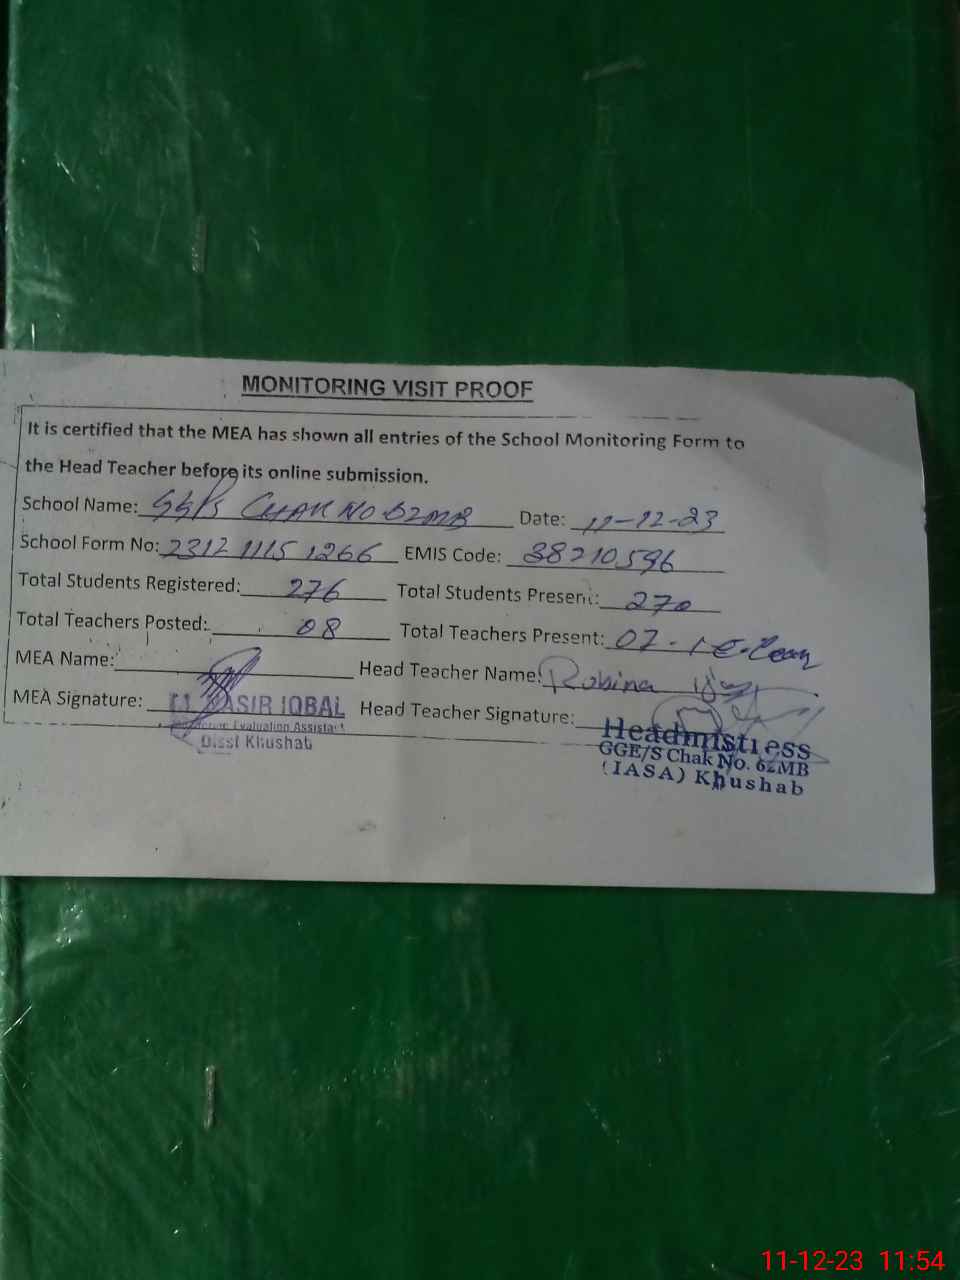 MONITORING VISIT PROOF
It is certified that the MEA has shown all entries of the School Monitoring Form to
the Head Teacher before its online submission.
School Name: CHAK NO 62MB Date: 11-12-23
School Form No: 2312 1115 1266 EMIS Code: 38210596
Total Students Registered: 276 Total Students Present: 270
Total Teachers Posted: 08 Total Teachers Present: 07
MEA Name: Head Teacher Name: Robina
MEA Signature: Head Teacher Signature:
NASIR IQBAL
Evaluation Assistant
Disst Khushab
Headmistress
GGE/S Chak No. 62MB
(IASA) Khushab
11-12-23 11:54